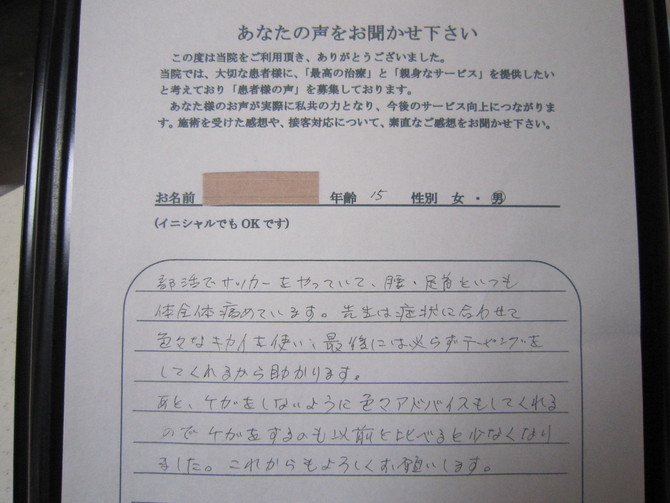 あなたの声をお聞かせ下さい
この度は当院をご利用頂き、ありがとうございました。
当院では、大切な患者様に、「最高の治療」と「親身なサービス」を提供したい
と考えており「患者様の声」を募集しております。
あなた様のお声が実際に私共の力となり、今後のサービス向上につながりま
す。施術を受けた感想や、接客対応について、素直なご感想をお聞かせ下さい。
お名前 年齢 15 性別 女・男
(イニシャルでもOKです)
部活でサッカーをやっていて、腰・足首といつも
体全体病めています。先生は症状に合わせて
色々なキカイを使い、最後には必らずテーピングを
してくれるから助かります。
あと、ケガをしないように色々アドバイスもしてくれる
のでケガをするのも以前と比べると少なくなり
ました。これからもよろしくお願いします。